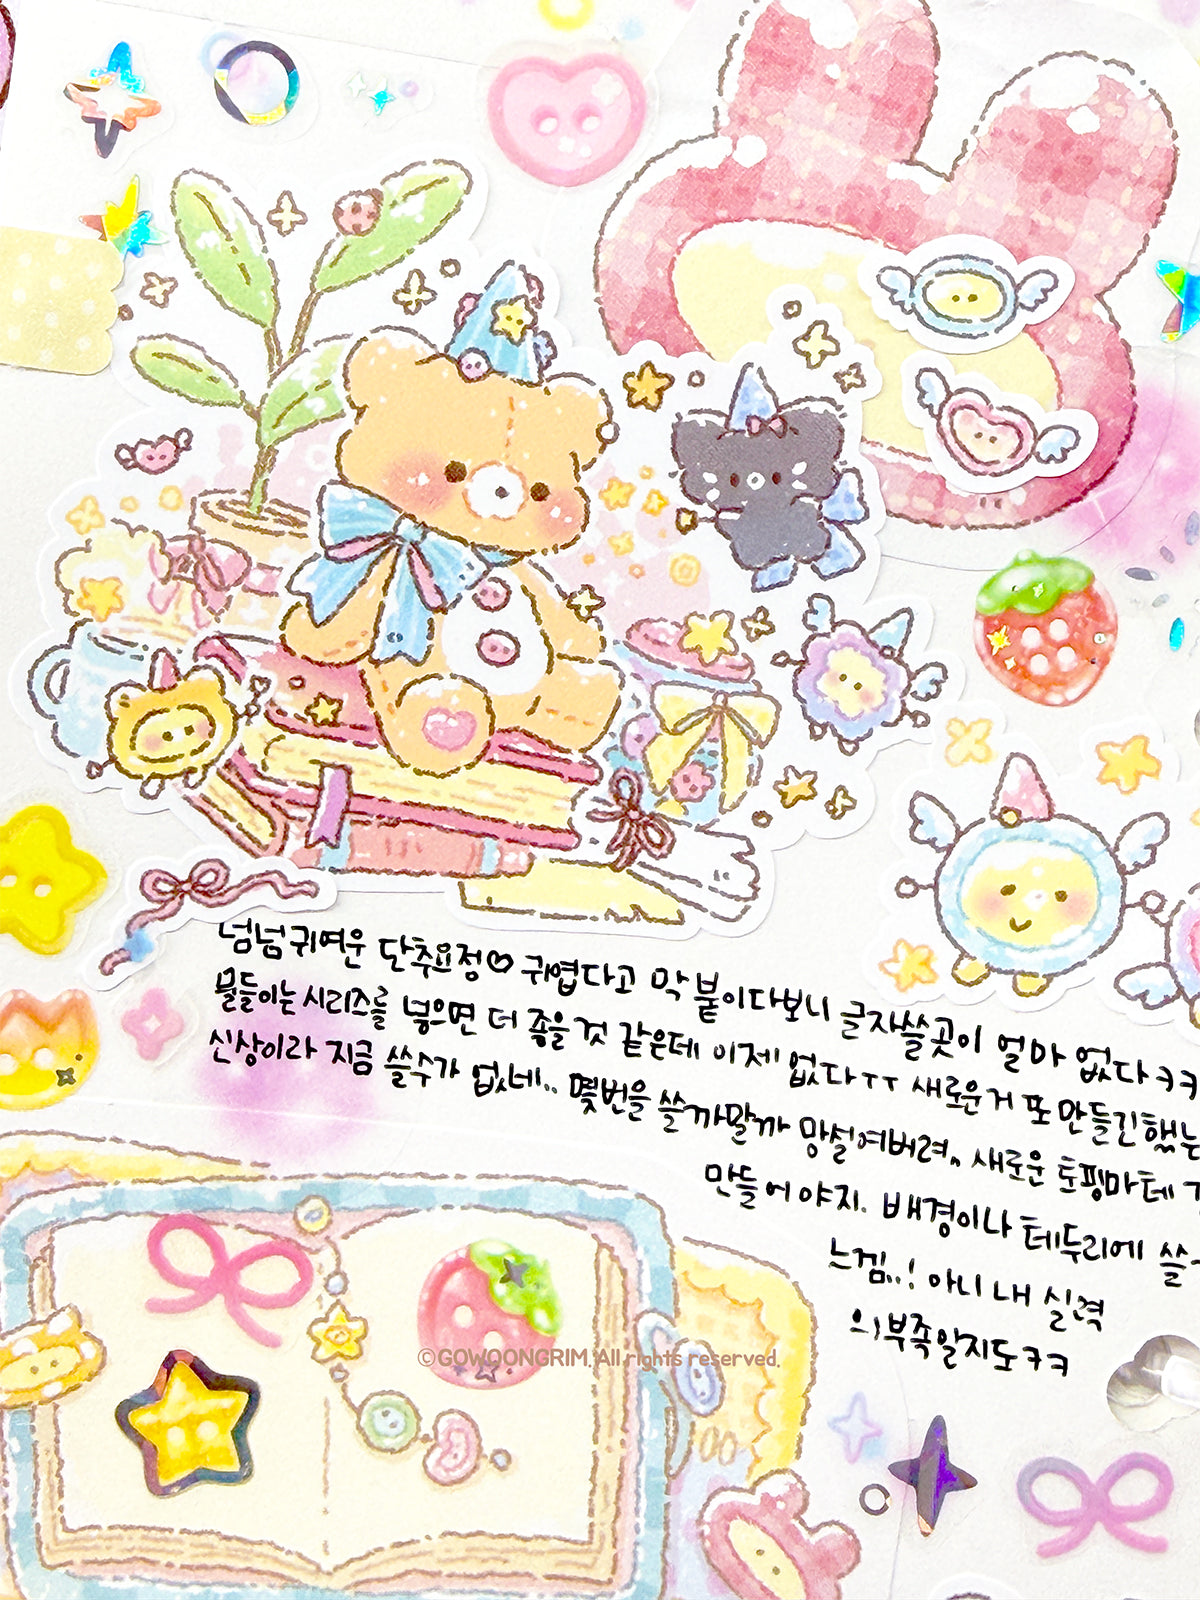 넘넘귀여운 단추요정♡ 귀엽다고 막 붙이다보니 글자쓸곳이 얼마 없다ㅋㅋ
물들이는 시리즈를 넣으면 더 좋을것 같은데 이제 없다ㅜㅜ 새로운거 또 만들긴했는
신상이라 지금 쓸수가 없네.. 몇번을 쓸까말까 망설여버려.. 새로운 토핑마테
만들어야지. 배경이나 테두리에 쓸
느낌..! 아니 내 실력
의부족일지도ㅋㅋ
©GOWOONGRIM. All rights reserved.